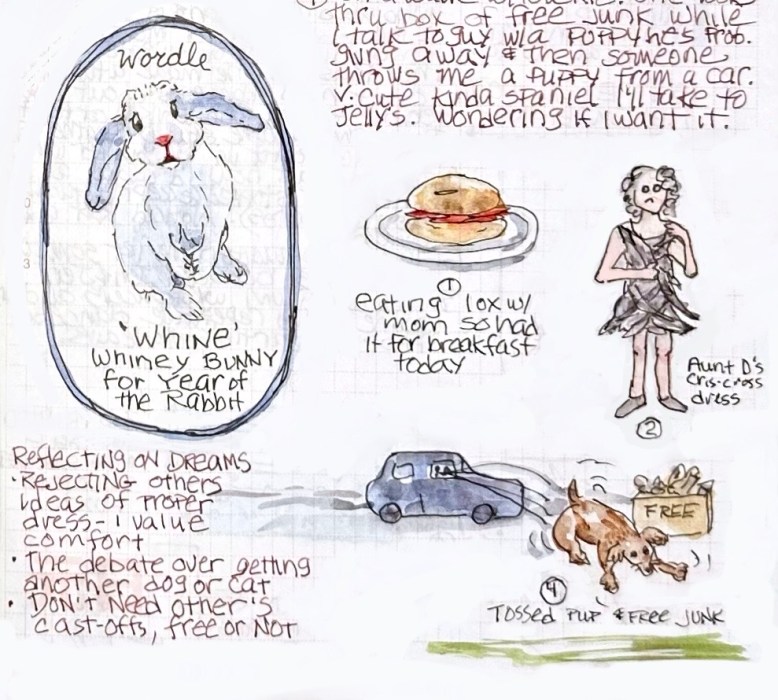 thru box of free junk while
I talk to guy w/a puppy he's prob.
giving away & then someone
throws me a puppy from a car.
V. cute kinda spaniel I'll take to
Jelly's. Wondering if I want it.
Wordle
'WHINE'
WHINEY BUNNY
for Year of
the Rabbit
①
eating lox w/
mom so had
it for breakfast
today
Aunt D's
Cris-cross
dress
②
Reflecting on DREAMS
• Rejecting others
ideas of proper
dress - I value
comfort
• The debate over getting
another dog or cat
• DON'T Need other's
cast-offs, free or NOT
FREE
④
Tossed Pup & Free JUNK